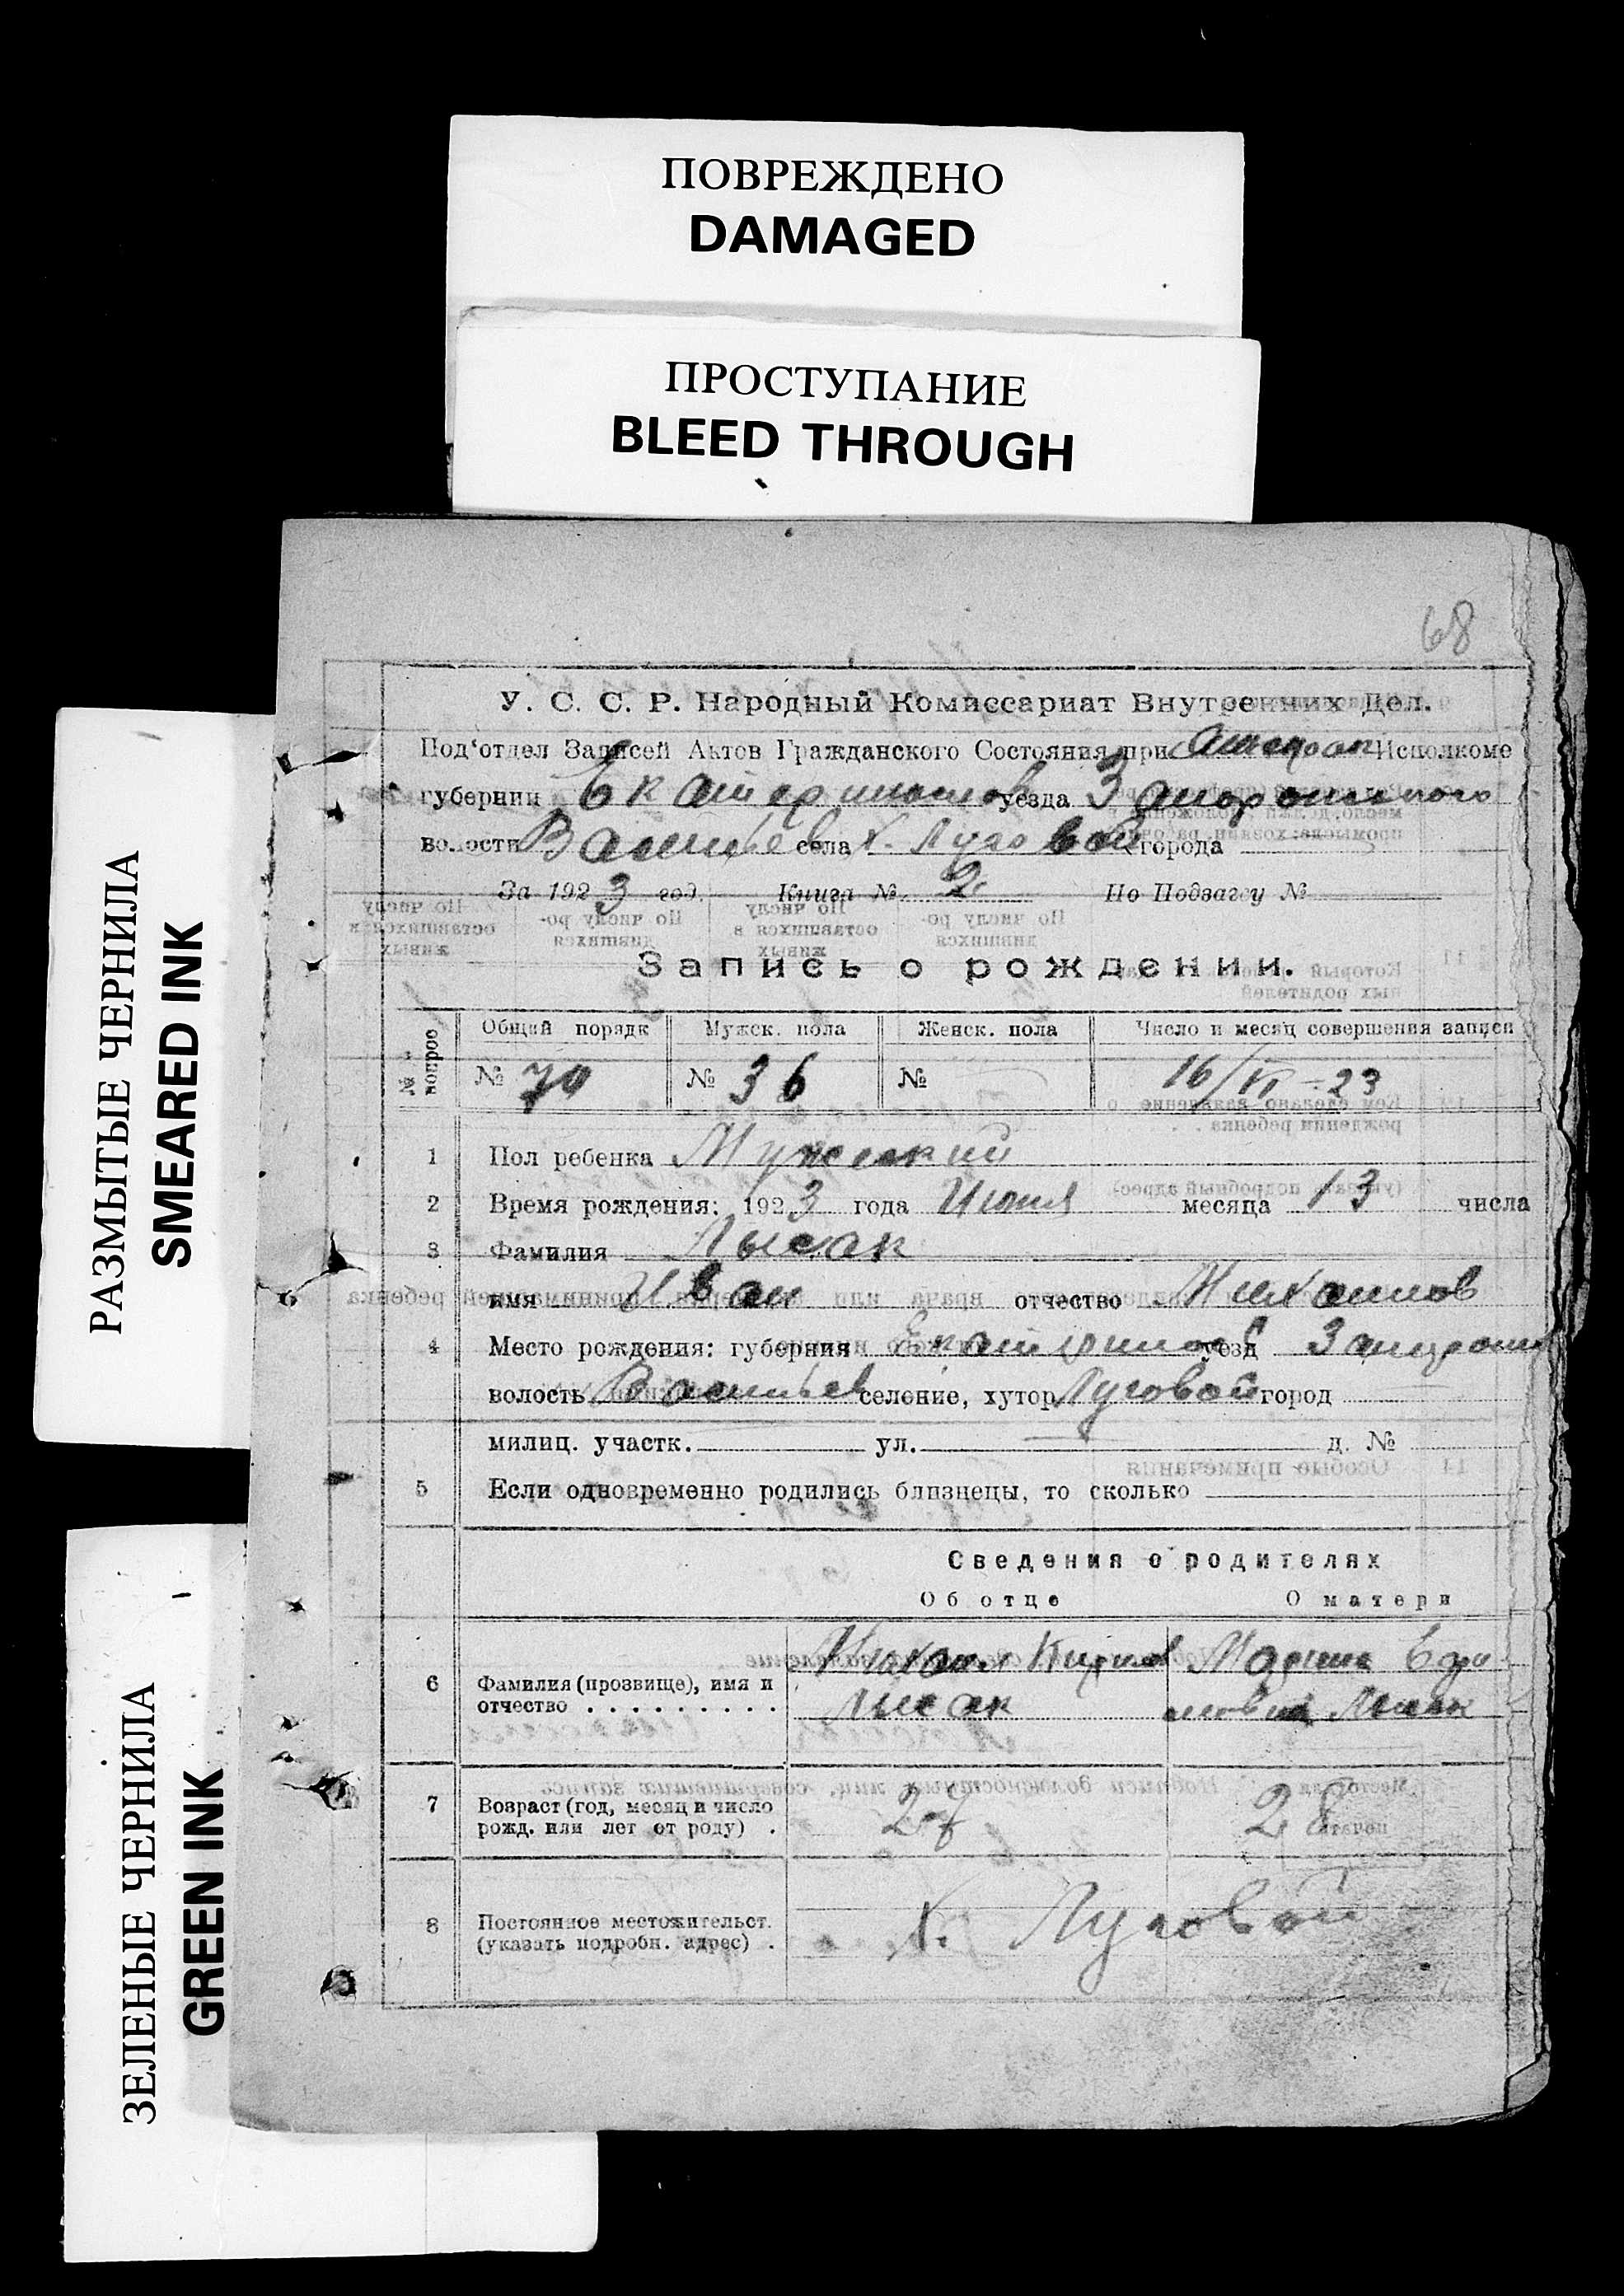 ПОВРЕЖДЕНО
DAMAGED
ПРОСТУПАНИЕ
BLEED THROUGH
РАЗМЫТЫЕ ЧЕРНИЛА
SMEARED INK
ЗЕЛЕНЫЕ ЧЕРНИЛА
GREEN INK
68
У. С. С. Р. Народный Комиссариат Внутренних Дел.
Под'отдел Записей Актов Гражданского Состояния при Исполкоме
губернии Екатеринослов уезда Запорожского
волости Васильев села х. Луговой города
За 1923 год. Книга № 2 По Подзагсу №
Запись о рождении.
№ вопроса Общий порядк Мужск. пола Женск. пола Число и месяц совершения записи
№ 70 № 36 № 16/VI-23
1 Пол ребенка Мужеский
2 Время рождения: 1923 года Июня месяца 13 числа
3 Фамилия Лысак
имя Иван отчество Михаилов
4 Место рождения: губерния Екатеринос уезд Запорож
волость Васильев селение, хутор Луговой город
милиц. участк. ул. д. №
5 Если одновременно родились близнецы, то сколько
Сведения о родителях
Об отце О матери
6 Фамилия (прозвище), имя и Михаил Кирилов Марина
отчество . . . . . . . . . Лысак Лысак
7 Возраст (год, месяц и число
рожд. или лет от роду) . 27 28
8 Постоянное местожительст. х. Луговой
(указать подробн. адрес) .